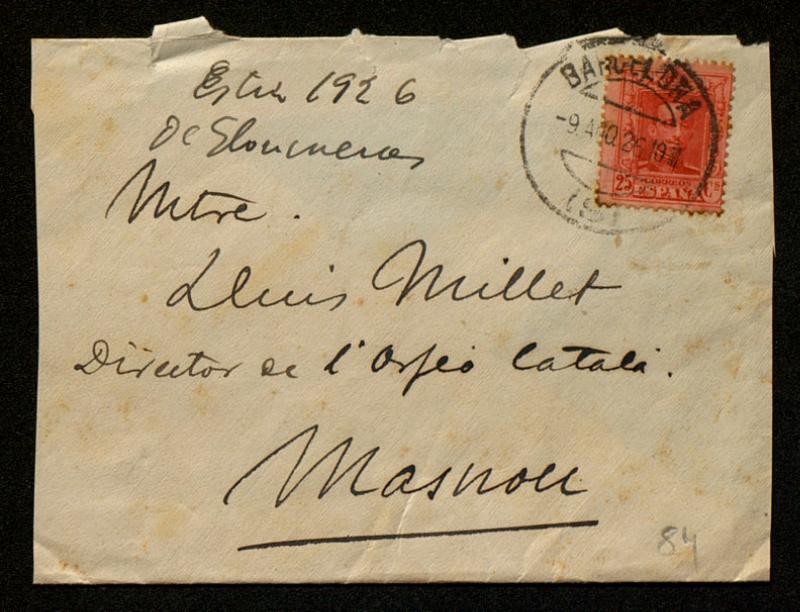 Estiu 1926
Mtre.
Lluis Millet
Director de l'Orfeó Català.
Masnou
84
BARCELONA
-9.AGO.26.19
CORREOS
25 ESPAÑA Cs